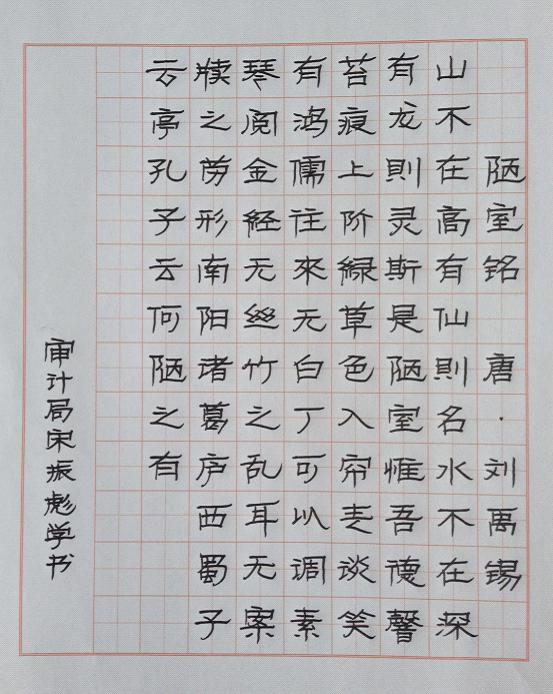 陋室铭 唐·刘禹锡
山不在高有仙則名水不在深
有龙則灵斯是陋室惟吾德馨
苔痕上阶緑草色入帘青谈笑
有鸿儒往來无白丁可以调素
琴阅金経无丝竹之乱耳无案
牍之劳形南阳诸葛庐西蜀子
云亭孔子云何陋之有
审计局宋振彪学书